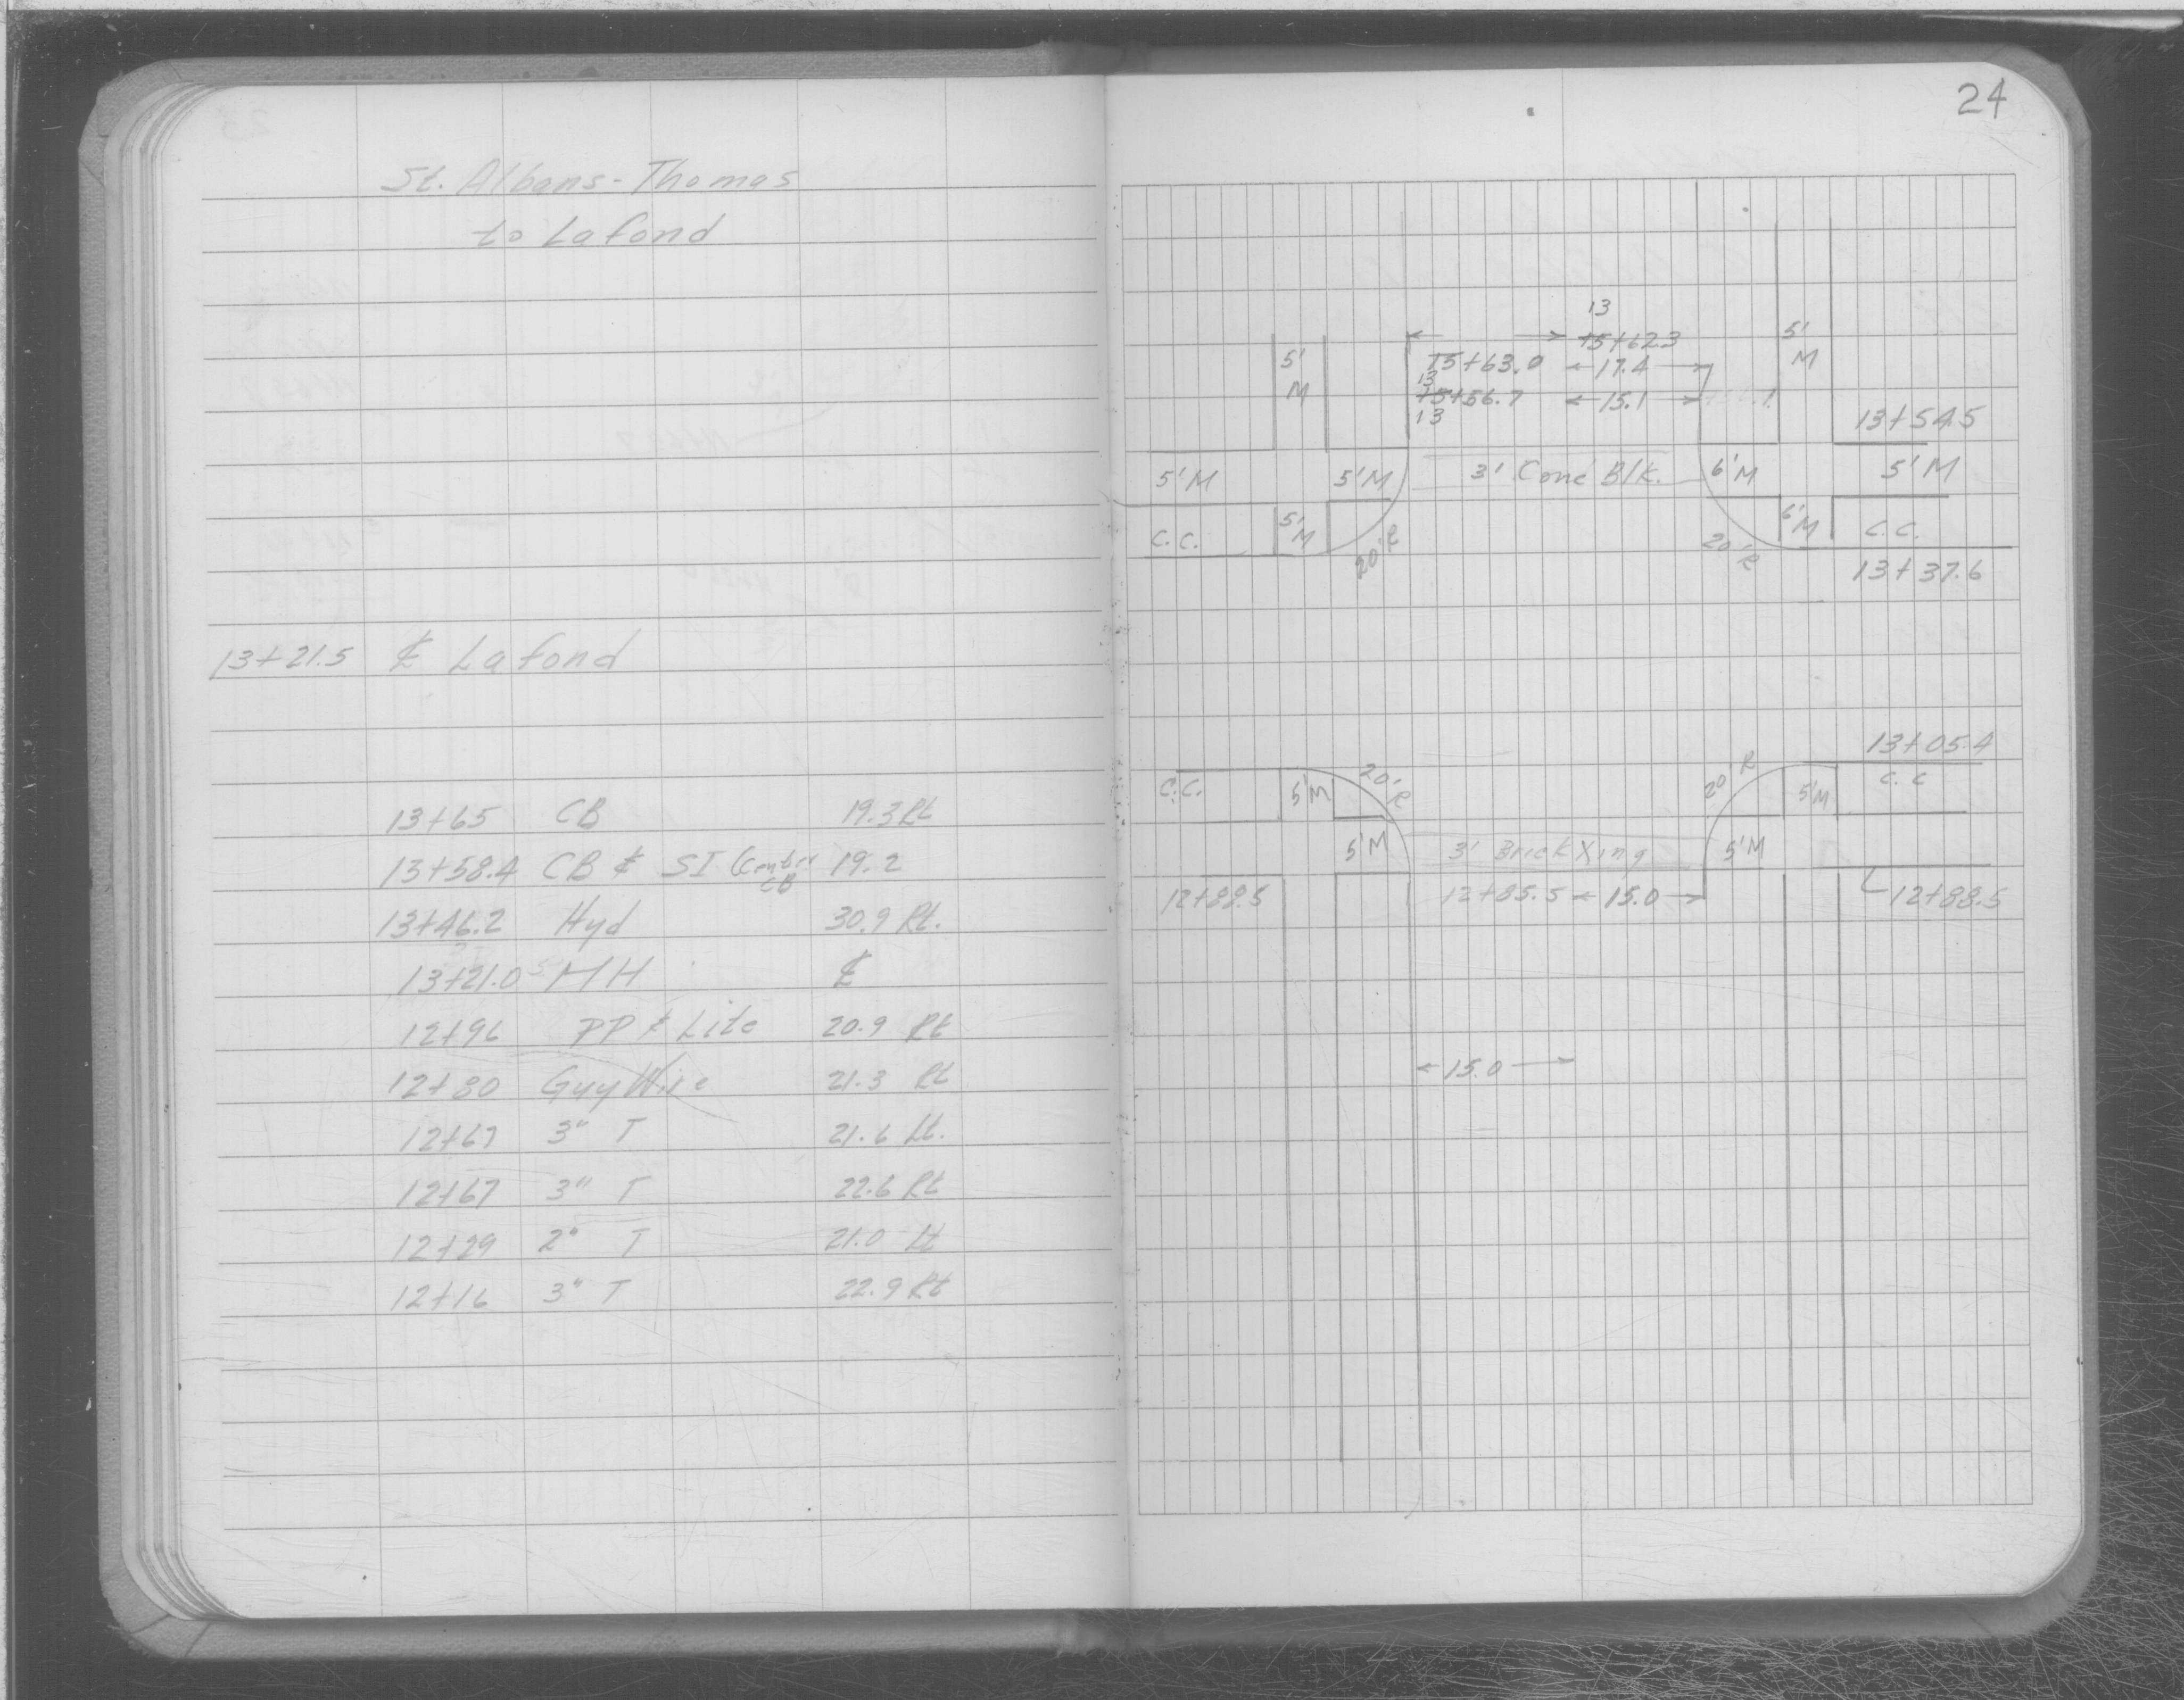 24
St. Albans - Thomas
to Lafond
13+21.5 ℄ Lafond
13+65 CB 19.3 Rt
13+58.4 CB & SI (Center CB 19.2
13+46.2 Hyd 30.9 Rt.
13+21.0 MH ℄
12+96 PP & Lite 20.9 Rt
12+80 Guy Wire 21.3 Rt
12+67 3" T 21.6 Lt.
12+67 3" T 22.6 Rt
12+29 2" T 21.0 Lt
12+16 3" T 22.9 Rt
13
15+62.3
5' M
5' M
15+63.0 17.4
13
15+56.7 15.1
13
13+54.5
5'M 5'M 3' Conc Blk. 6'M 5'M
C.C. 5'M 20'R 20'R 6'M C.C.
13+37.6
13+05.4
C.C. 5'M 20'R 20'R 5'M C.C
5'M 3' Brick Xing 5'M
12+88.5 12+85.5 15.0 12+88.5
15.0